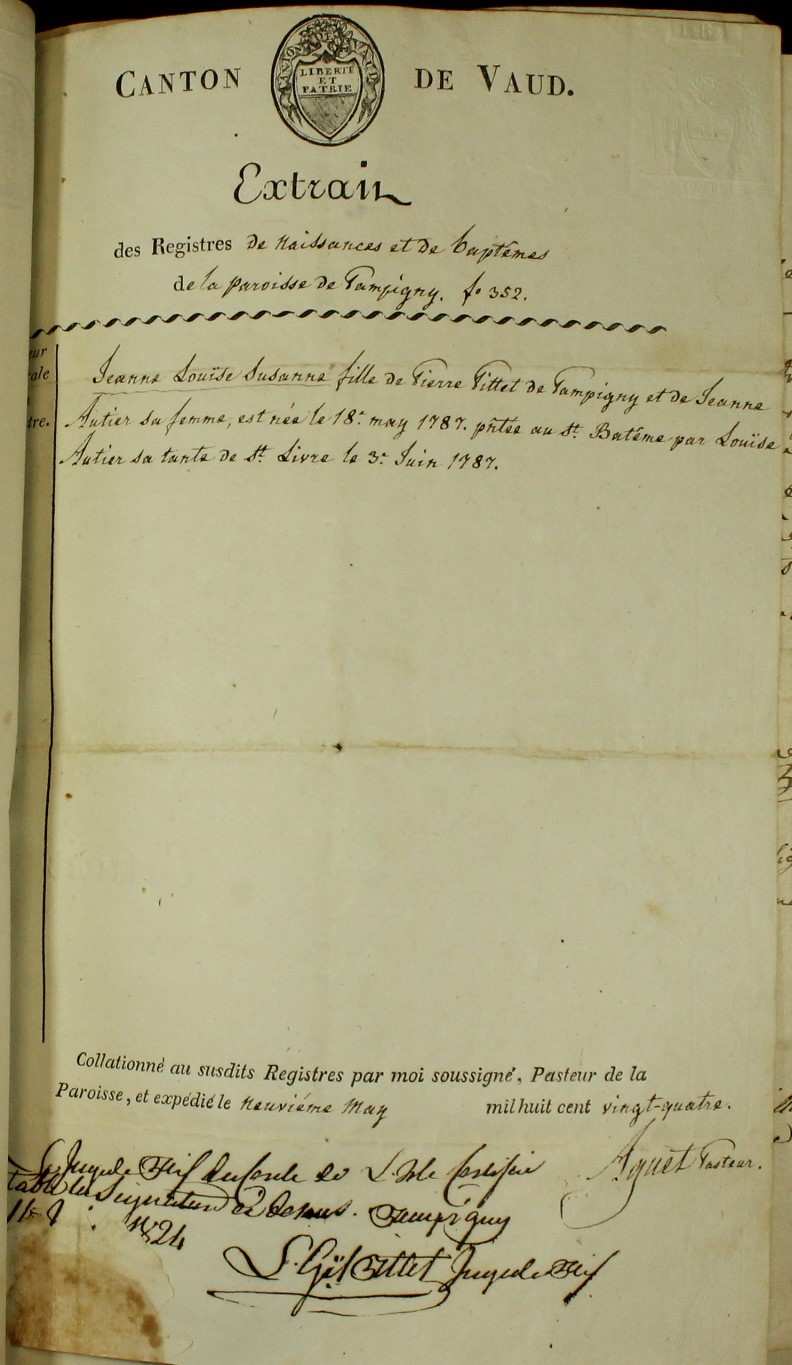 CANTON DE VAUD.
CANTON DE VAUD
LIBERTÉ
ET
PATRIE
Extrait
des Registres de Naissances et de baptêmes
de la paroisse de Pampigny. fo 352.
eur
ale
tre.
Jeanne Louïse Susanne fille de Pierre Pittet de Pampigny et de Jeanne
Autier sa femme, est née le 18e may 1787. pñtée au St. Batême par Louïse
Autier sa tante de St. Livre le 3e Juin 1787.
Collationné au susdits Registres par moi soussigné, Pasteur de la
Paroisse, et expédié le neuviéme May mil huit cent vingt-quatre.
Aguet Pasteur.
Le Juge de Paix du Cercle de L'Isle Certifie
la Signature Ci dessus. Pampigny
1824
Pittet Juge de Paix